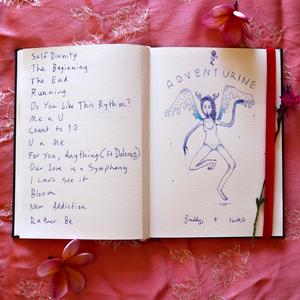 Self Divinity
The Beginning
The End
Running
Do You Like This Rythm?
Me n U
Count to 10
U n Me
For you, Anything (ft Dolores)
Our Love is a Symphony
I can't see it
Bloom
New Addiction
Rather Be
ADVENTURINE
+